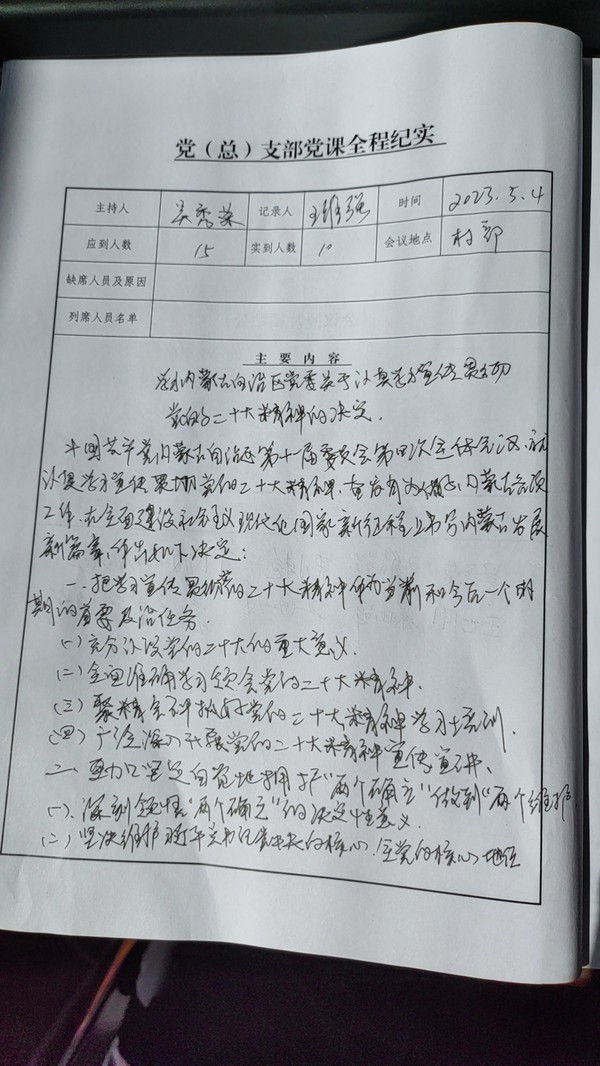 党（总）支部党课全程纪实
主持人 吴秀荣 记录人 王维强 时间 2023.5.4
应到人数 15 实到人数 10 会议地点 村部
缺席人员及原因
列席人员名单
主要内容
内蒙古自治区党委关于认真学习宣传贯彻
党的二十大精神的决定.
中国共产党内蒙古自治区第十一届委员会第四次全体会议,就
认真学习宣传贯彻党的二十大精神,奋发有为做好内蒙古各项
工作,在全面建设社会主义现代化国家新征程上书写内蒙古发展
新篇章,作出如下决定:
一.把学习宣传贯彻党的二十大精神作为当前和今后一个时
期的首要政治任务.
(一)充分认识党的二十大的重大意义.
(二)全面准确学习领会党的二十大精神.
(三)聚精会神抓好党的二十大精神学习培训.
(四)广泛深入开展党的二十大精神宣传宣讲.
二.更加坚定自觉地拥护"两个确立"做到"两个维护"
(一).深刻领悟"两个确立"的决定性意义.
(二)坚决维护习近平总书记党中央的核心.全党的核心地位